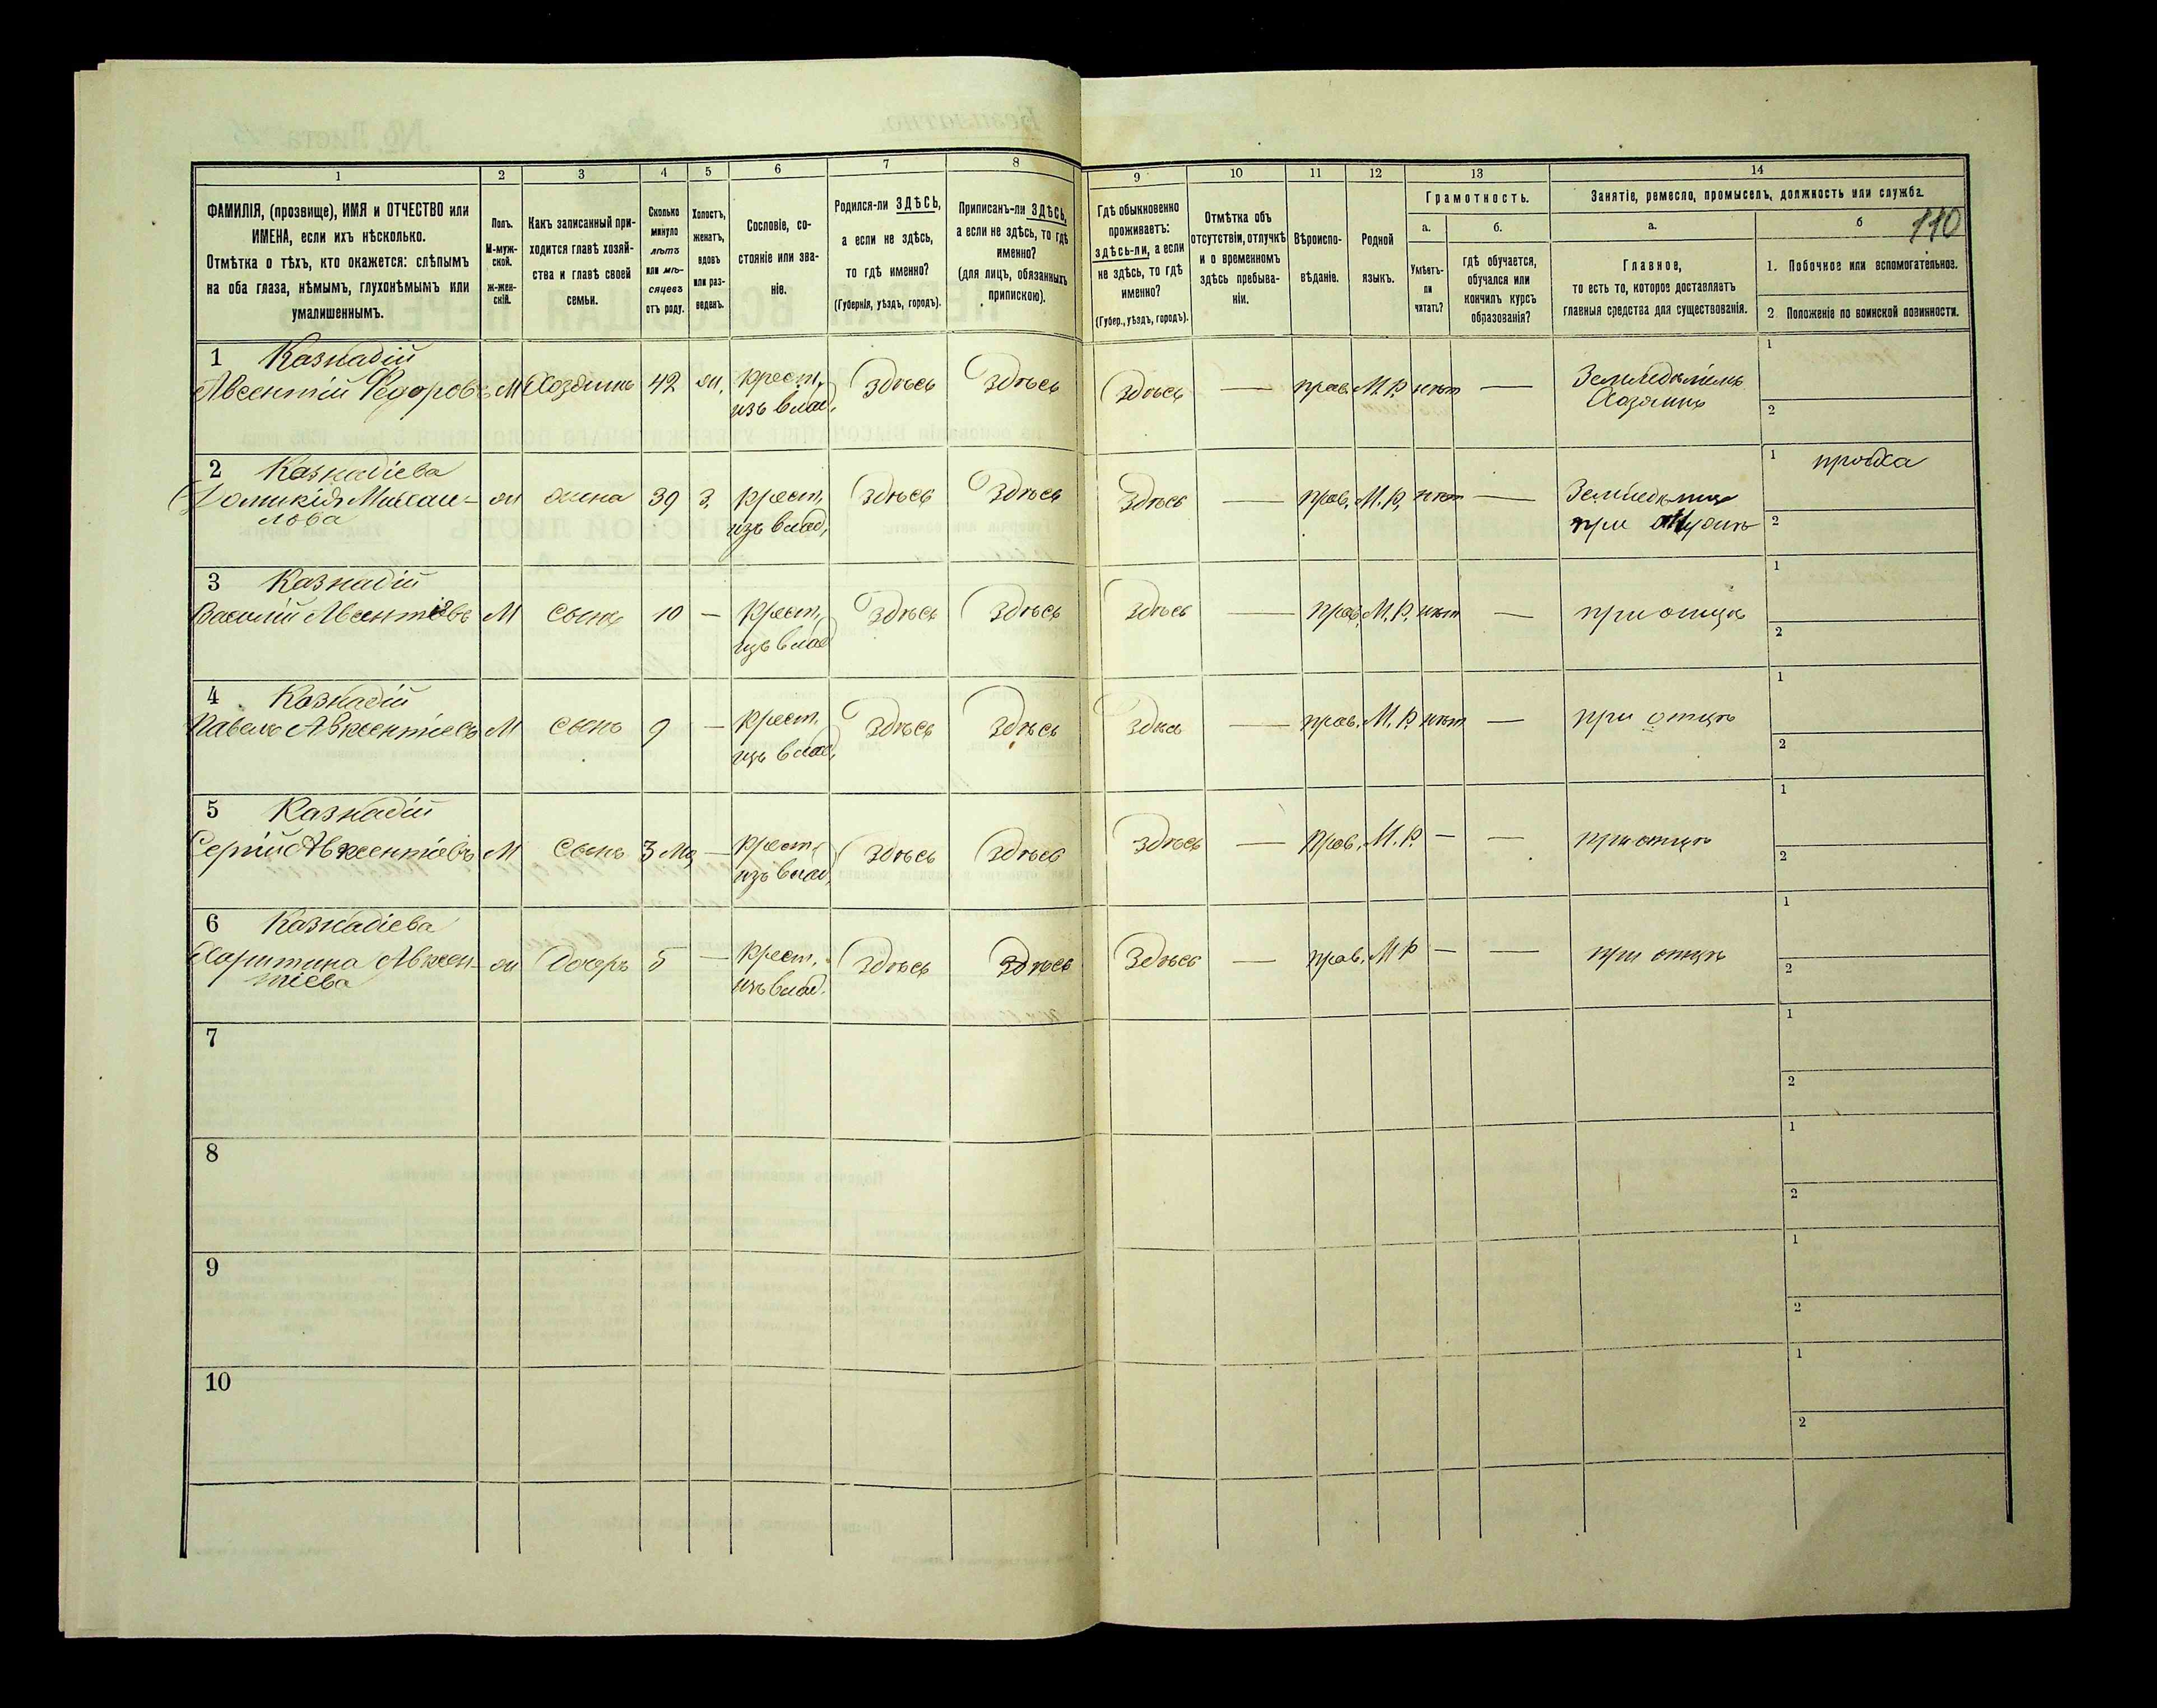 110
1 2 3 4 5 6 7 8 9 10 11 12 13 14
ФАМИЛІЯ, (прозвище), ИМЯ и ОТЧЕСТВО или
ИМЕНА, если ихъ нѣсколько.
Отмѣтка о тѣхъ, кто окажется: слѣпымъ
на оба глаза, нѣмымъ, глухонѣмымъ или
умалишеннымъ.
Полъ.
М-муж-
ской.
ж-жен-
скій.
Какъ записанный при-
ходится главѣ хозяй-
ства и главѣ своей
семьи.
Сколько
минуло
лѣтъ
или мѣ-
сяцевъ
отъ роду.
Холостъ,
женатъ,
вдовъ
или раз-
веденъ.
Сословіе, со-
стояніе или зва-
ніе.
Родился-ли ЗДѢСЬ,
а если не здѣсь,
то гдѣ именно?
(Губернія, уѣздъ, городъ).
Приписанъ-ли ЗДѢСЬ,
а если не здѣсь, то гдѣ
именно?
(для лицъ, обязанныхъ
припискою).
Гдѣ обыкновенно
проживаетъ:
здѣсь-ли, а если
не здѣсь, то гдѣ
именно?
(Губер., уѣздъ, городъ).
Отмѣтка объ
отсутствіи, отлучкѣ
и о временномъ
здѣсь пребыва-
ніи.
Вѣроиспо-
вѣданіе.
Родной
языкъ.
Грамотность.
а.
Умѣетъ-
ли
читать?
б.
гдѣ обучается,
обучался или
кончилъ курсъ
образованія?
Занятіе, ремесло, промыселъ, должность или служба.
а.
Главное,
то есть то, которое доставляетъ
главныя средства для существованія.
б
1. Побочное или вспомогательное.
2. Положеніе по воинской повинности.
1 Казнадій
Авсентій Федоровъ М Хозяинъ 42 ж. крест. здѣсь здѣсь здѣсь — прав. М.Р. нѣтъ — Земледѣлецъ 1
изъ влад. Хозяинъ 2
2 Казнадіева 1 пряха
Домникія Михаи- ж жена 39 з. крест. здѣсь здѣсь здѣсь — прав. М.Р. нѣтъ —
лова изъ влад. при 2
3 Казнадій 1
Василій Авсентіевъ М Сынъ 10 — крест. здѣсь здѣсь здѣсь — прав. М.Р. нѣтъ — при отцѣ
изъ влад 2
4 Казнадій 1
Павелъ Авксентіевъ М Сынъ 9 — крест. здѣсь здѣсь здѣсь — прав. М.Р. нѣтъ — при отцѣ
изъ влад. 2
5 Казнадій 1
Сергій Авксентіевъ М Сынъ 3 Мц — крест. здѣсь здѣсь здѣсь — прав. М.Р. — — при отцѣ
изъ влад. 2
6 Казнадіева 1
Харитина Авксен- ж Дочерь 5 — крест. здѣсь здѣсь здѣсь — прав. М Р — — при отцѣ
тіева изъ влад. 2
7 1
2
8 1
2
9 1
2
10 1
2